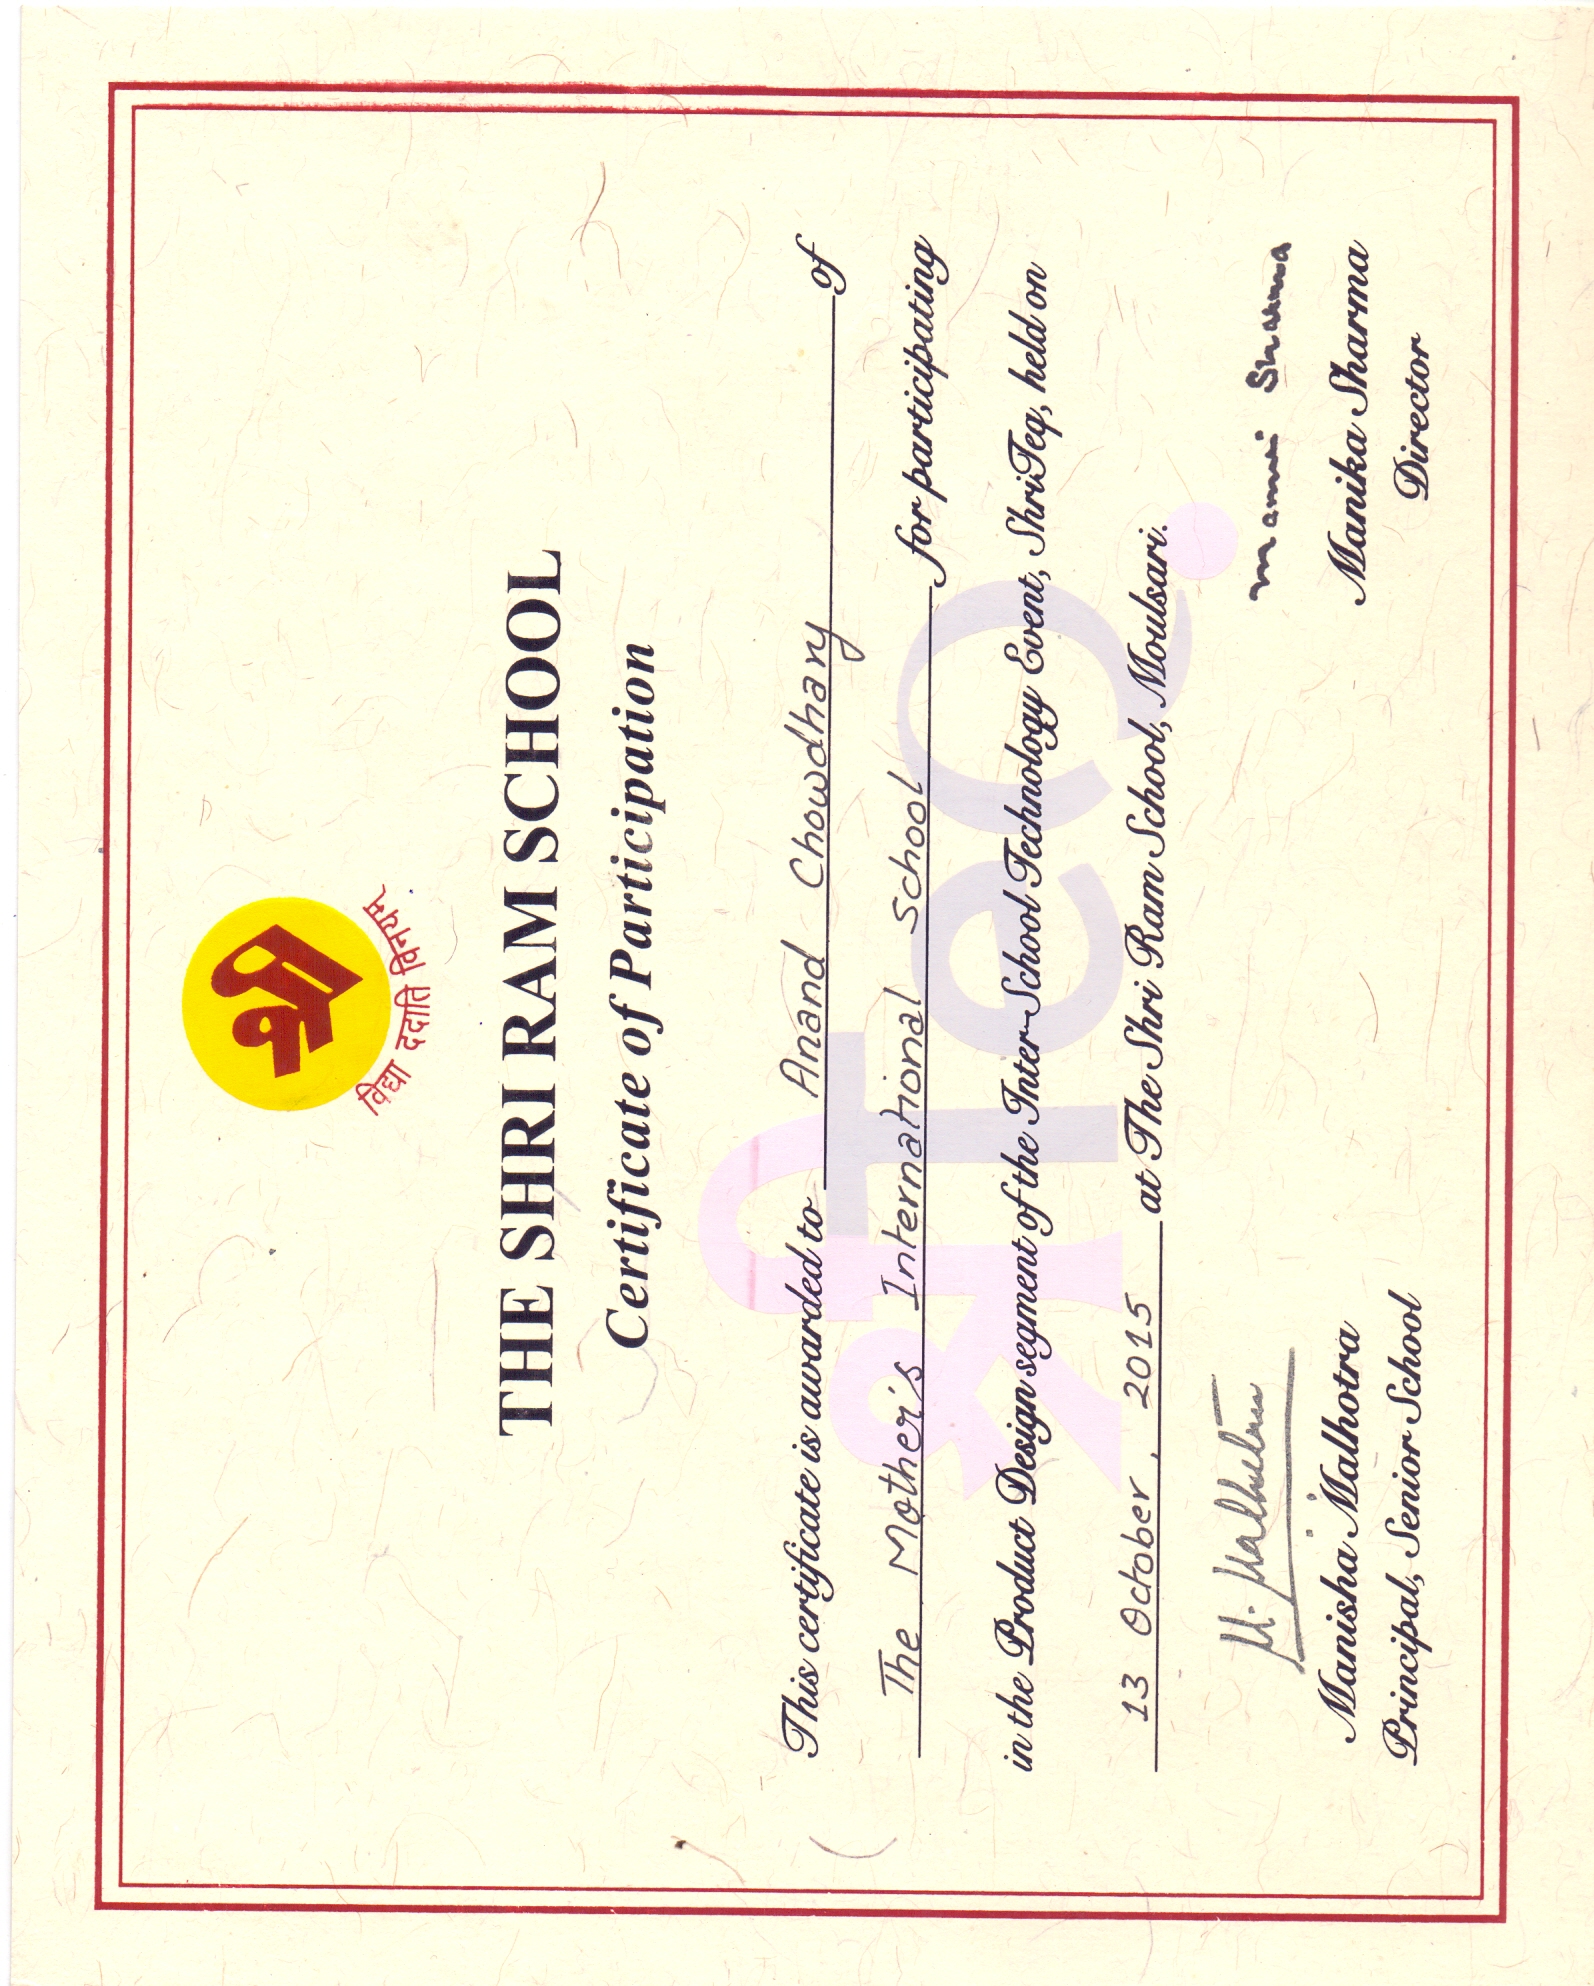 श्री
विद्या ददाति विनयम्
THE SHRI RAM SCHOOL
Certificate of Participation
This certificate is awarded to Anand Chowdhary of
The Mother's International School for participating
in the Product Design segment of the Inter-School Technology Event, ShriTeq, held on
13 October, 2015 at The Shri Ram School, Moulsari.
श्रीTeQ
M. Malhotra
Manisha Malhotra
Principal, Senior School
Sharma
Manika Sharma
Director